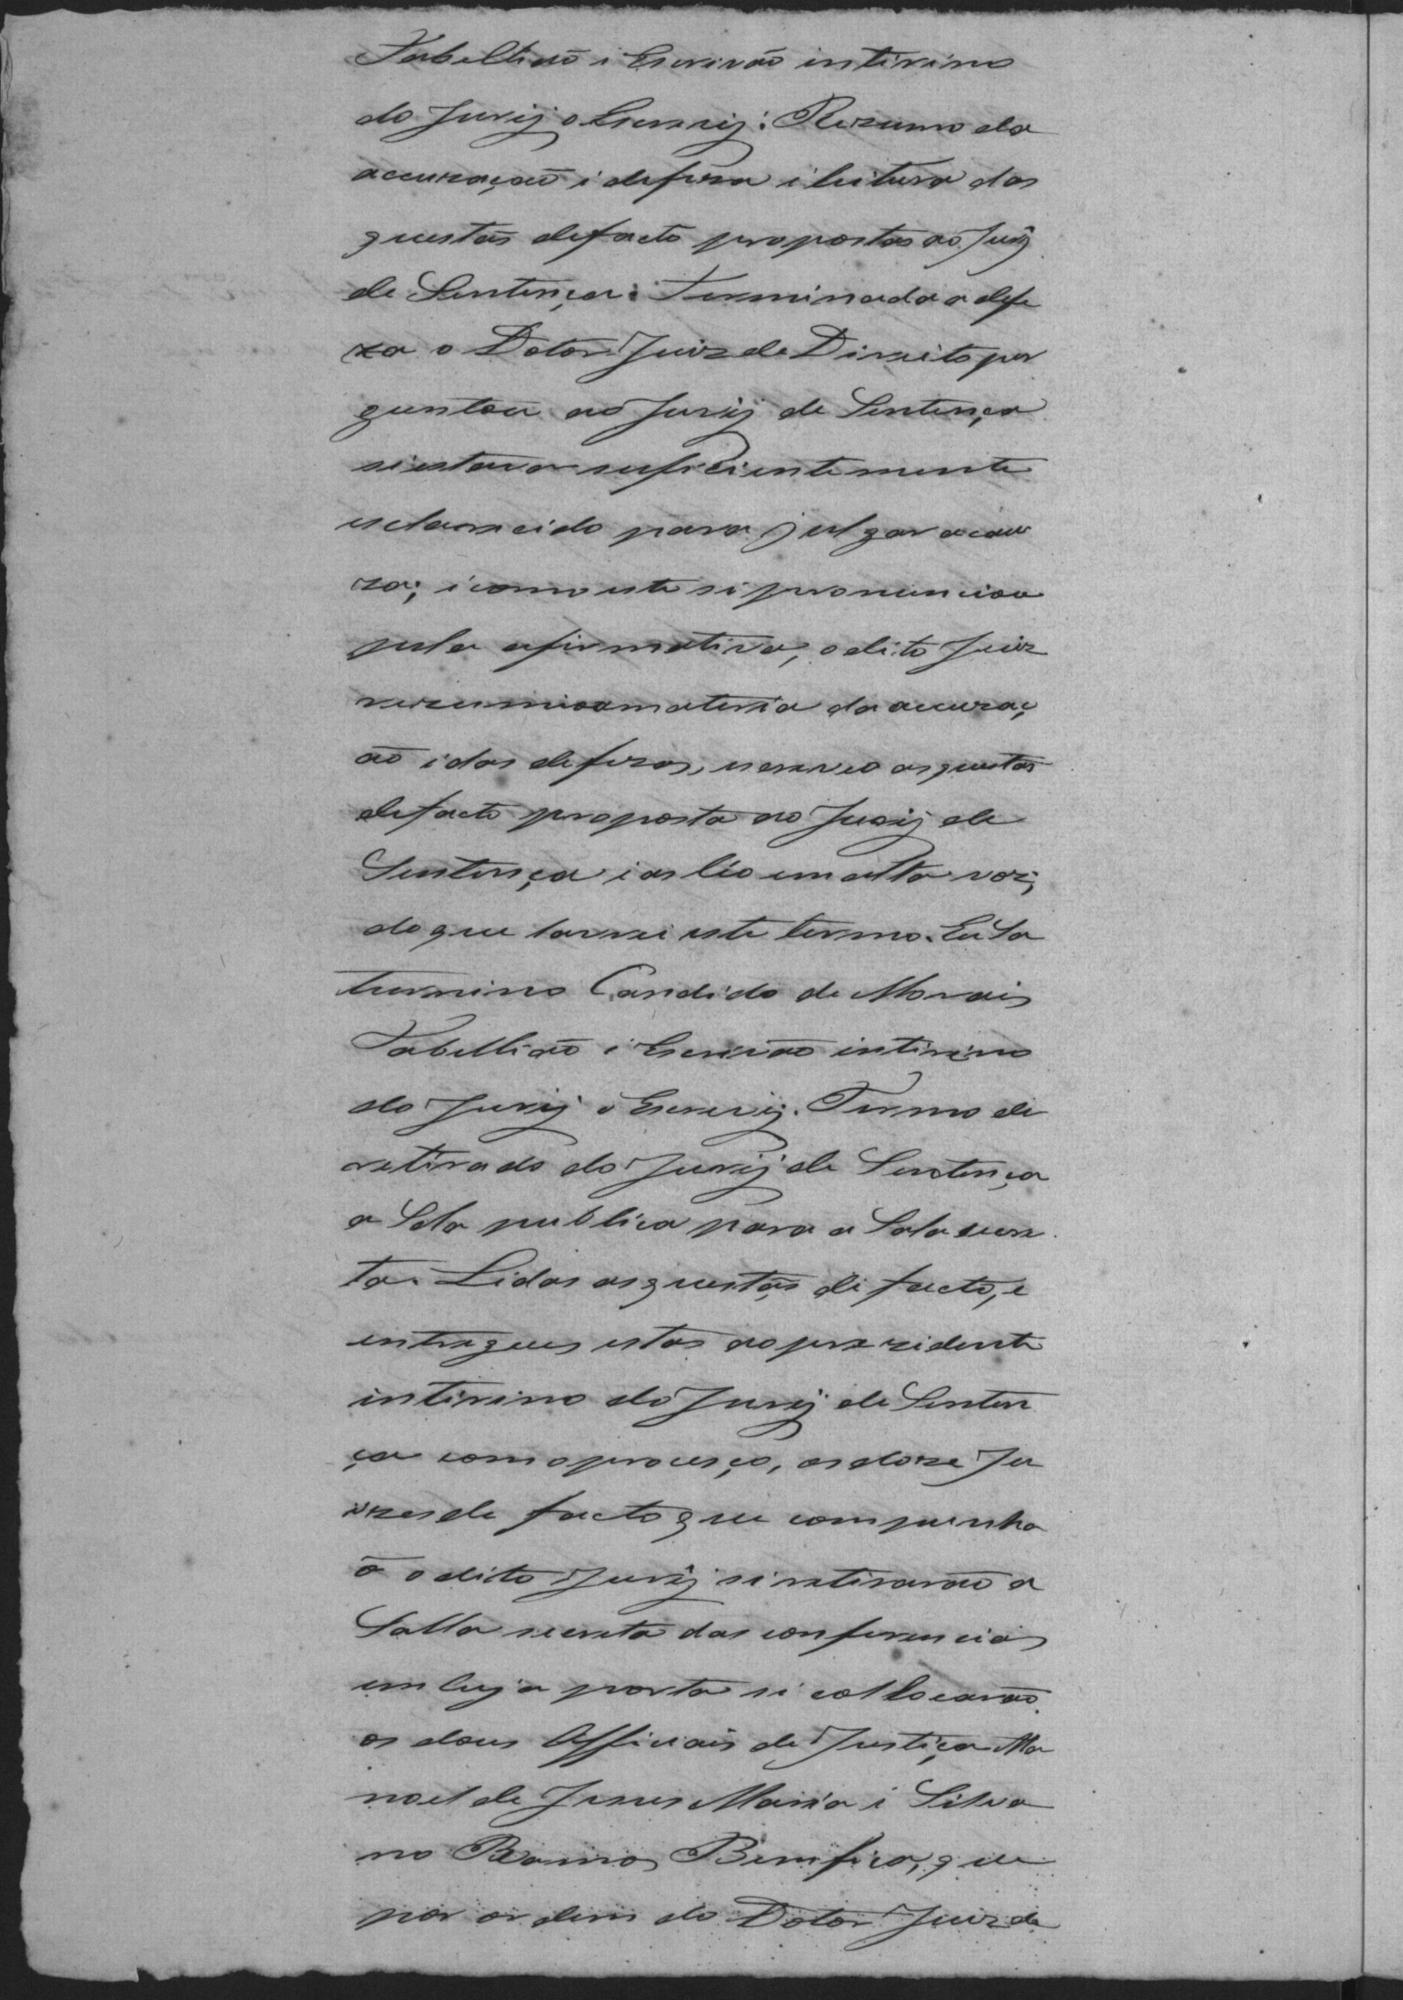 Tabellião i Escrivão intirino
do Jurij o Escrivij: Rezumo da
accuzação i defeza i leitura das
questãs defacto propostas ao Jurij
de Sentença: Terminada a defe
za o Dotor Juiz de Direito per
guntou ao Jurij de Sentença
si estava suficientemente
esclarecido para julgar a cau
za; i como este si pronunciou
pela afirmativa, o dito Juiz
rezumio a materia da accuzaç
ão i das defezas, escreveo as questãs
defacto proposta ao Jurij de
Sentença i as léo em alta voz;
do que lavrei este termo. Eu Sa
turnino Candido de Morais
Tabellião i Escrivão intirino
do Jurij o Escrevij. Termo de
retirada do Jurij de Sentença
a Sala publica para a Sala secre
ta. Lidas as questãs de facto, e
entregues estas ao prezidente
intirino do Jurij de Senten
ça com o proceço, os doze Ju
izes de facto que compunha
õ o dito Jurij si retirarão a
Salla secreta das conferencias
em cuja porta si collocarão
os dous Officiais de Justiça Ma
noel de Jezus Maria i Silva
no Ramos Bemfica, que
por ordem do Dotor Juiz de